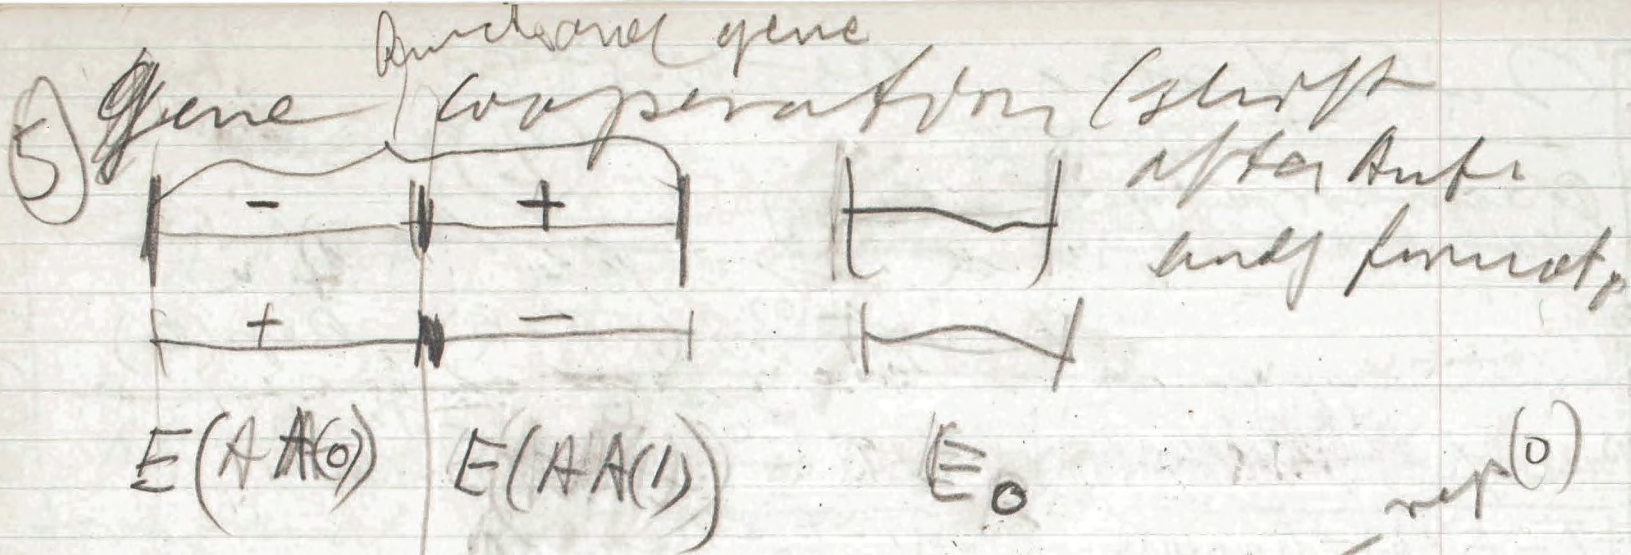 functional gene
5) gene cooperation (shift
after
and format.
- +
+ -
E(AA(0)) E(AA(1)) E₀
rep(0)